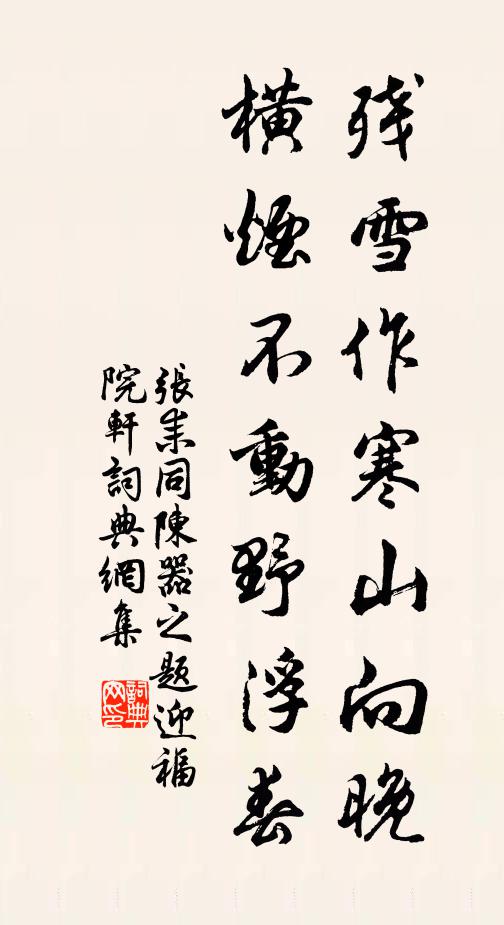 残雪作寒山向晚
横煙不動野浮春
張耒同陳器之題迎福
院軒詞典網集
詞典网印